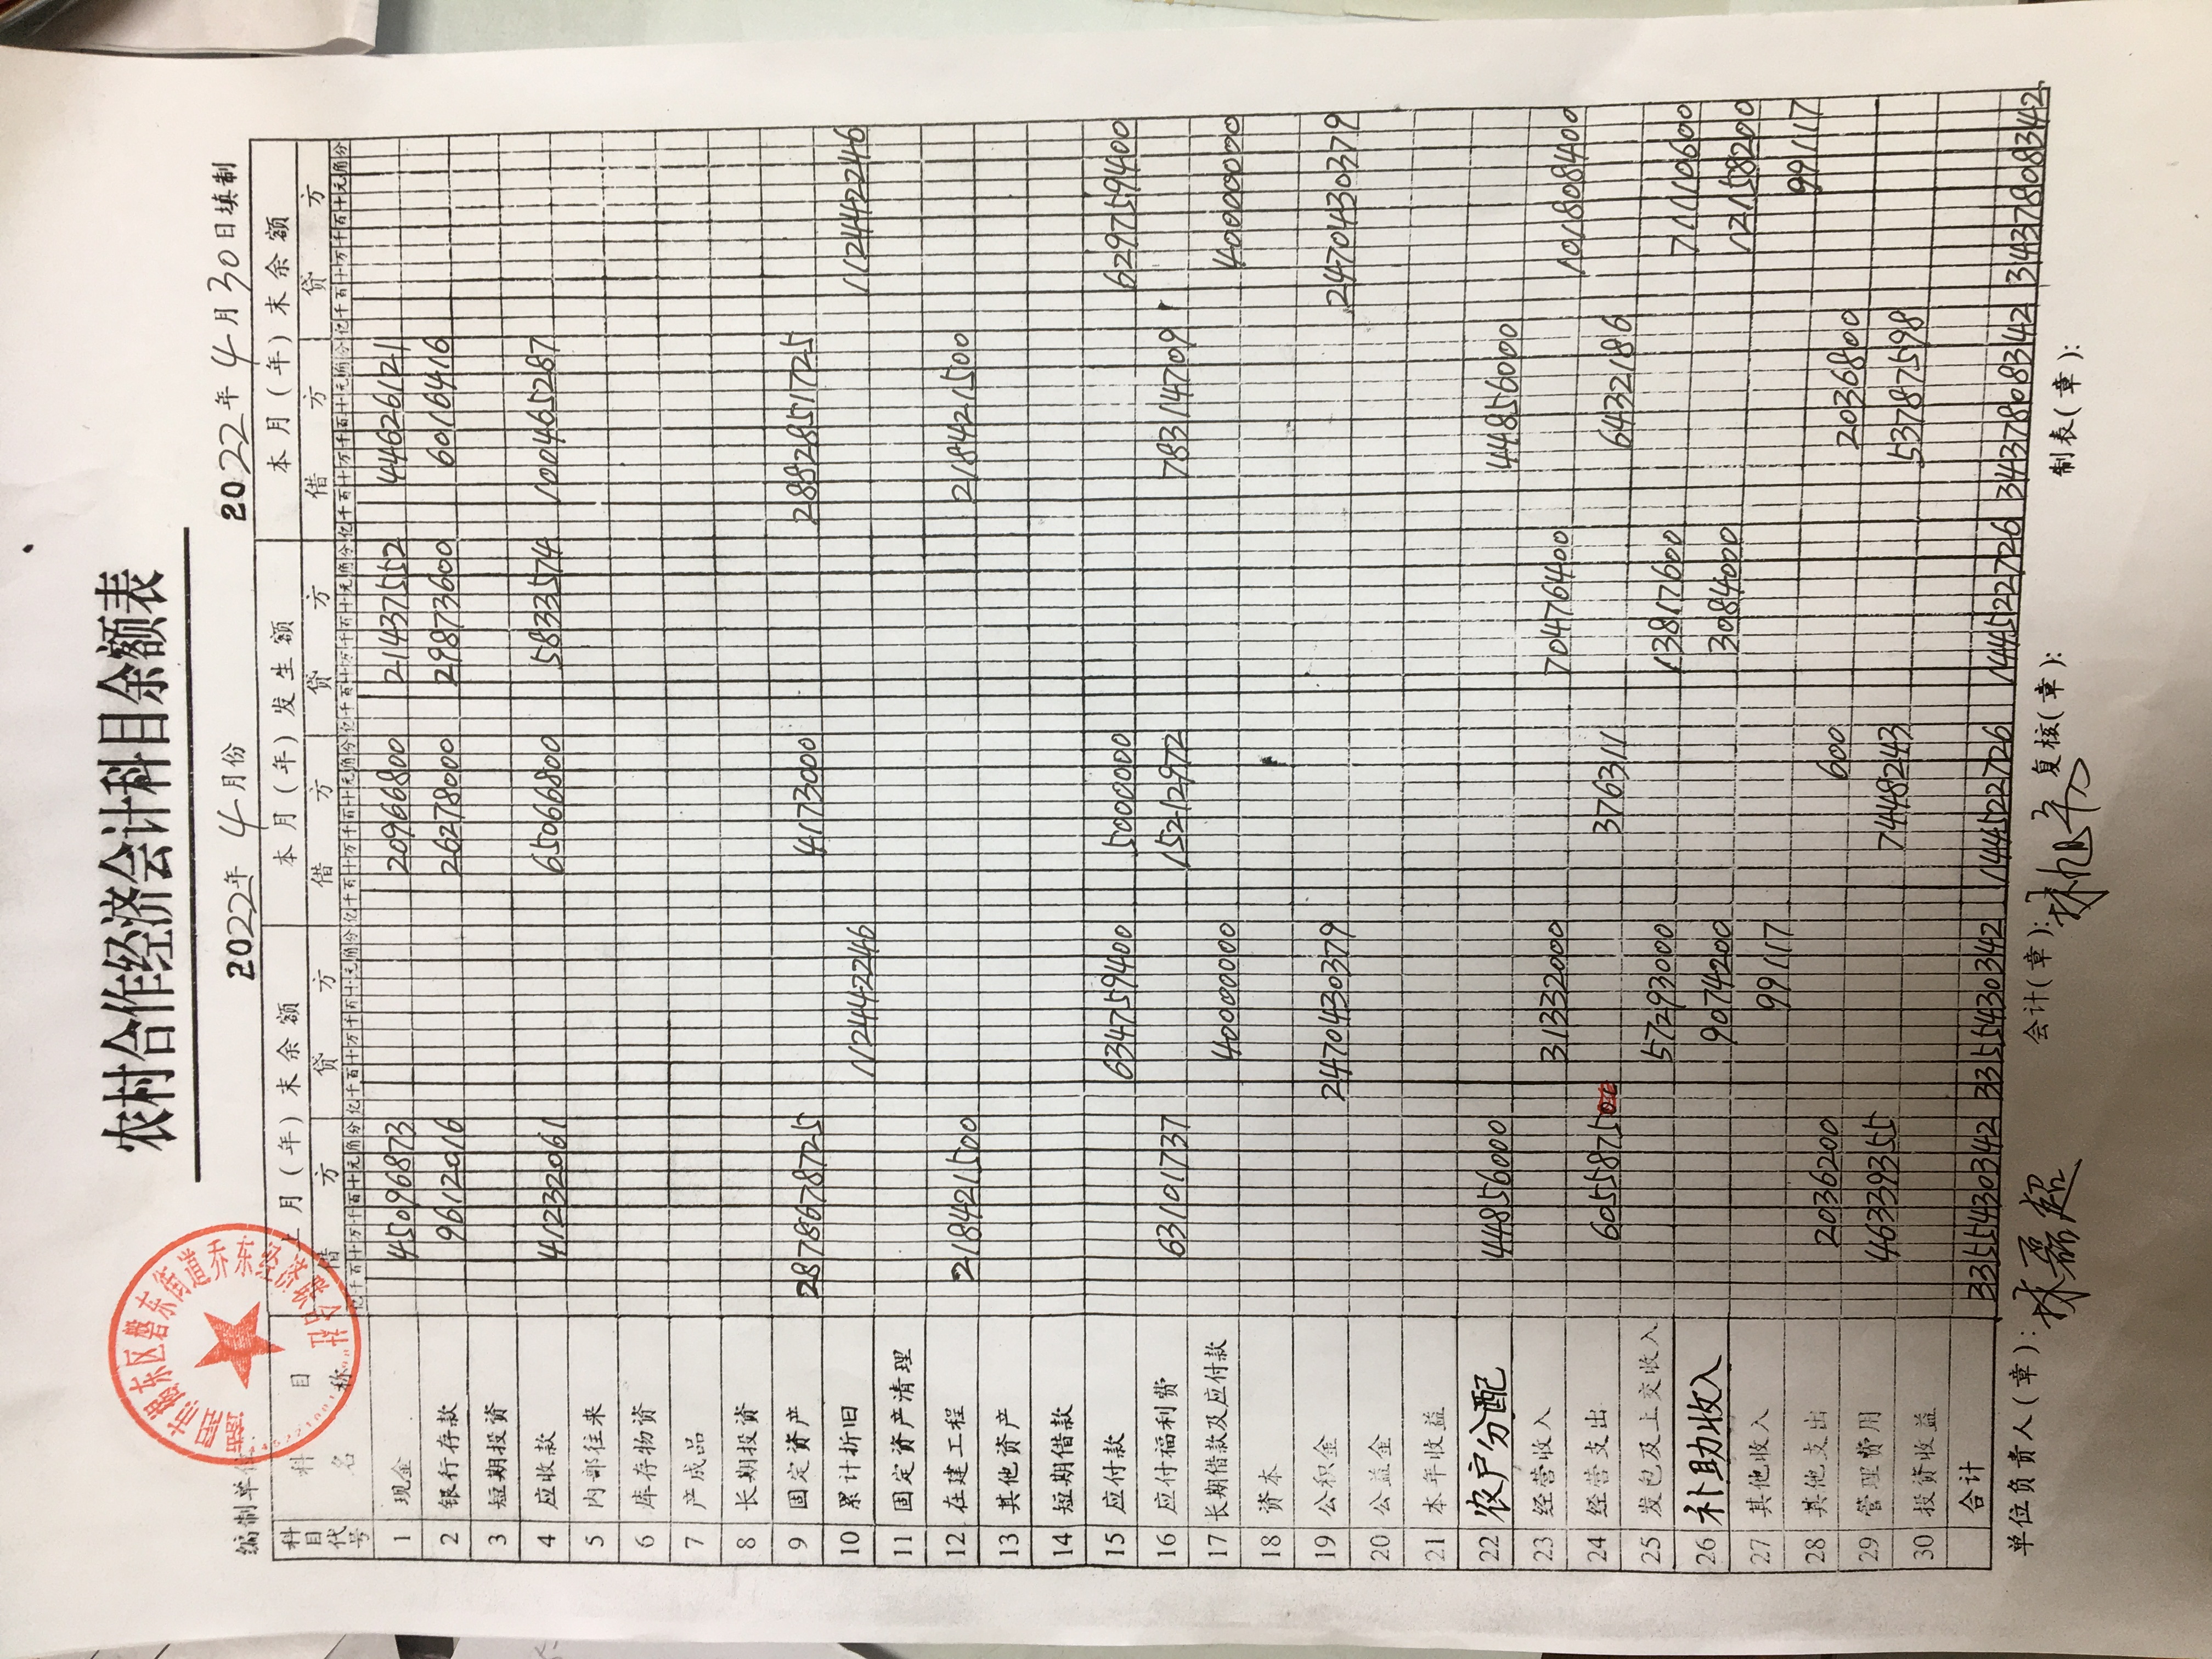 农村合作经济会计科目余额表
编制单位: 2022年4月份 2022年4月30日填制
科目代号 科目名称 上月(年)末余额 本月(年)发生额 本月(年)末余额
借方 贷方 借方 贷方 借方 贷方
亿千百十万千百十元角分 亿千百十万千百十元角分 亿千百十万千百十元角分 亿千百十万千百十元角分 亿千百十万千百十元角分 亿千百十万千百十元角分
1 现金 45096873 20966800 21437552 44626121
2 银行存款 9612016 26278000 29873600 6016416
3 短期投资
4 应收款 41232061 65066800 5833574 100465287
5 内部往来
6 库存物资
7 产成品
8 长期投资
9 固定资产 2878678725 4173000 2882851725
10 累计折旧 112442246 112442246
11 固定资产清理
12 在建工程 218421500 218421500
13 其他资产
14 短期借款
15 应付款 634759400 5000000 629759400
16 应付福利费 63101737 15212972 78314709
17 长期借款及应付款 40000000 40000000
18 资本
19 公积金 2470430379 2470430379
20 公益金
21 本年收益
22 农户分配 44856000 44856000
23 经营收入 31332000 70476400 101808400
24 经营支出 6055875 376311 6432186
25 发包及上交收入 57293000 13817600 71110600
26 补助收入 9074200 3084000 12158200
27 其他收入 99117 99117
28 其他支出 2036200 600 2036800
29 管理费用 46339355 7448243 53787598
30 投资收益
合计 3355430342 3355430342 144522726 144522726 3437808342 3437808342
单位负责人(章): 林磊超 会计(章): 复核(章): 制表(章):